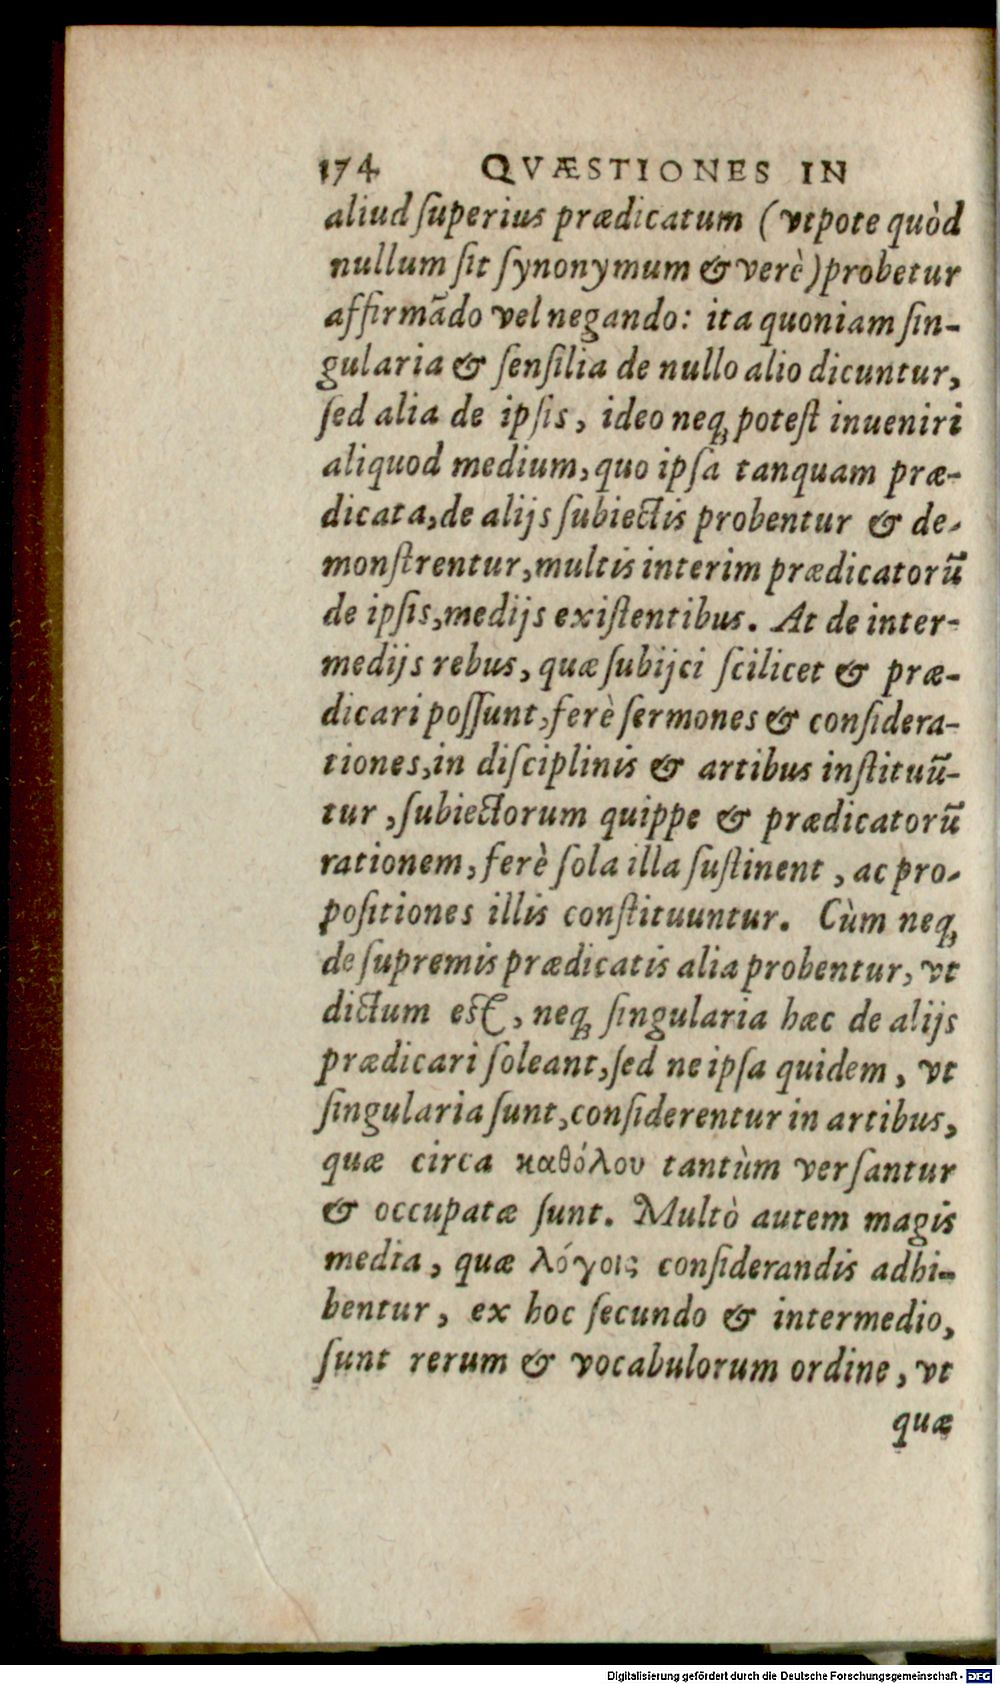 174 QVÆSTIONES IN
aliud ſuperius prædicatum (vtpote quòd
nullum ſit ſynonymum & verè) probetur
affirmãdo vel negando: ita quoniam ſin-
gularia & ſenſilia de nullo alio dicuntur,
ſed alia de ipſis, ideo neq; poteſt inueniri
aliquod medium, quo ipſa tanquam præ-
dicata, de alijs ſubiectis probentur & de-
monſtrentur, multis interim prædicatorũ
de ipſis, medijs exiſtentibus. At de inter-
medijs rebus, quæ ſubijci ſcilicet & præ-
dicari poſſunt, ferè ſermones & conſidera-
tiones, in diſciplinis & artibus inſtituũ-
tur, ſubiectorum quippe & prædicatorũ
rationem, ferè ſola illa ſuſtinent, ac pro-
poſitiones illis conſtituuntur. Cùm neq;
de ſupremis prædicatis alia probentur, vt
dictum eſt, neq; ſingularia hæc de alijs
prædicari ſoleant, ſed ne ipſa quidem, vt
ſingularia ſunt, conſiderentur in artibus,
quæ circa καθόλου tantùm verſantur
& occupatæ ſunt. Multò autem magis
media, quæ λόγοις conſiderandis adhi-
bentur, ex hoc ſecundo & intermedio,
ſunt rerum & vocabulorum ordine, vt
quæ
Digitalisierung gefördert durch die Deutsche Forschungsgemeinschaft - DFG